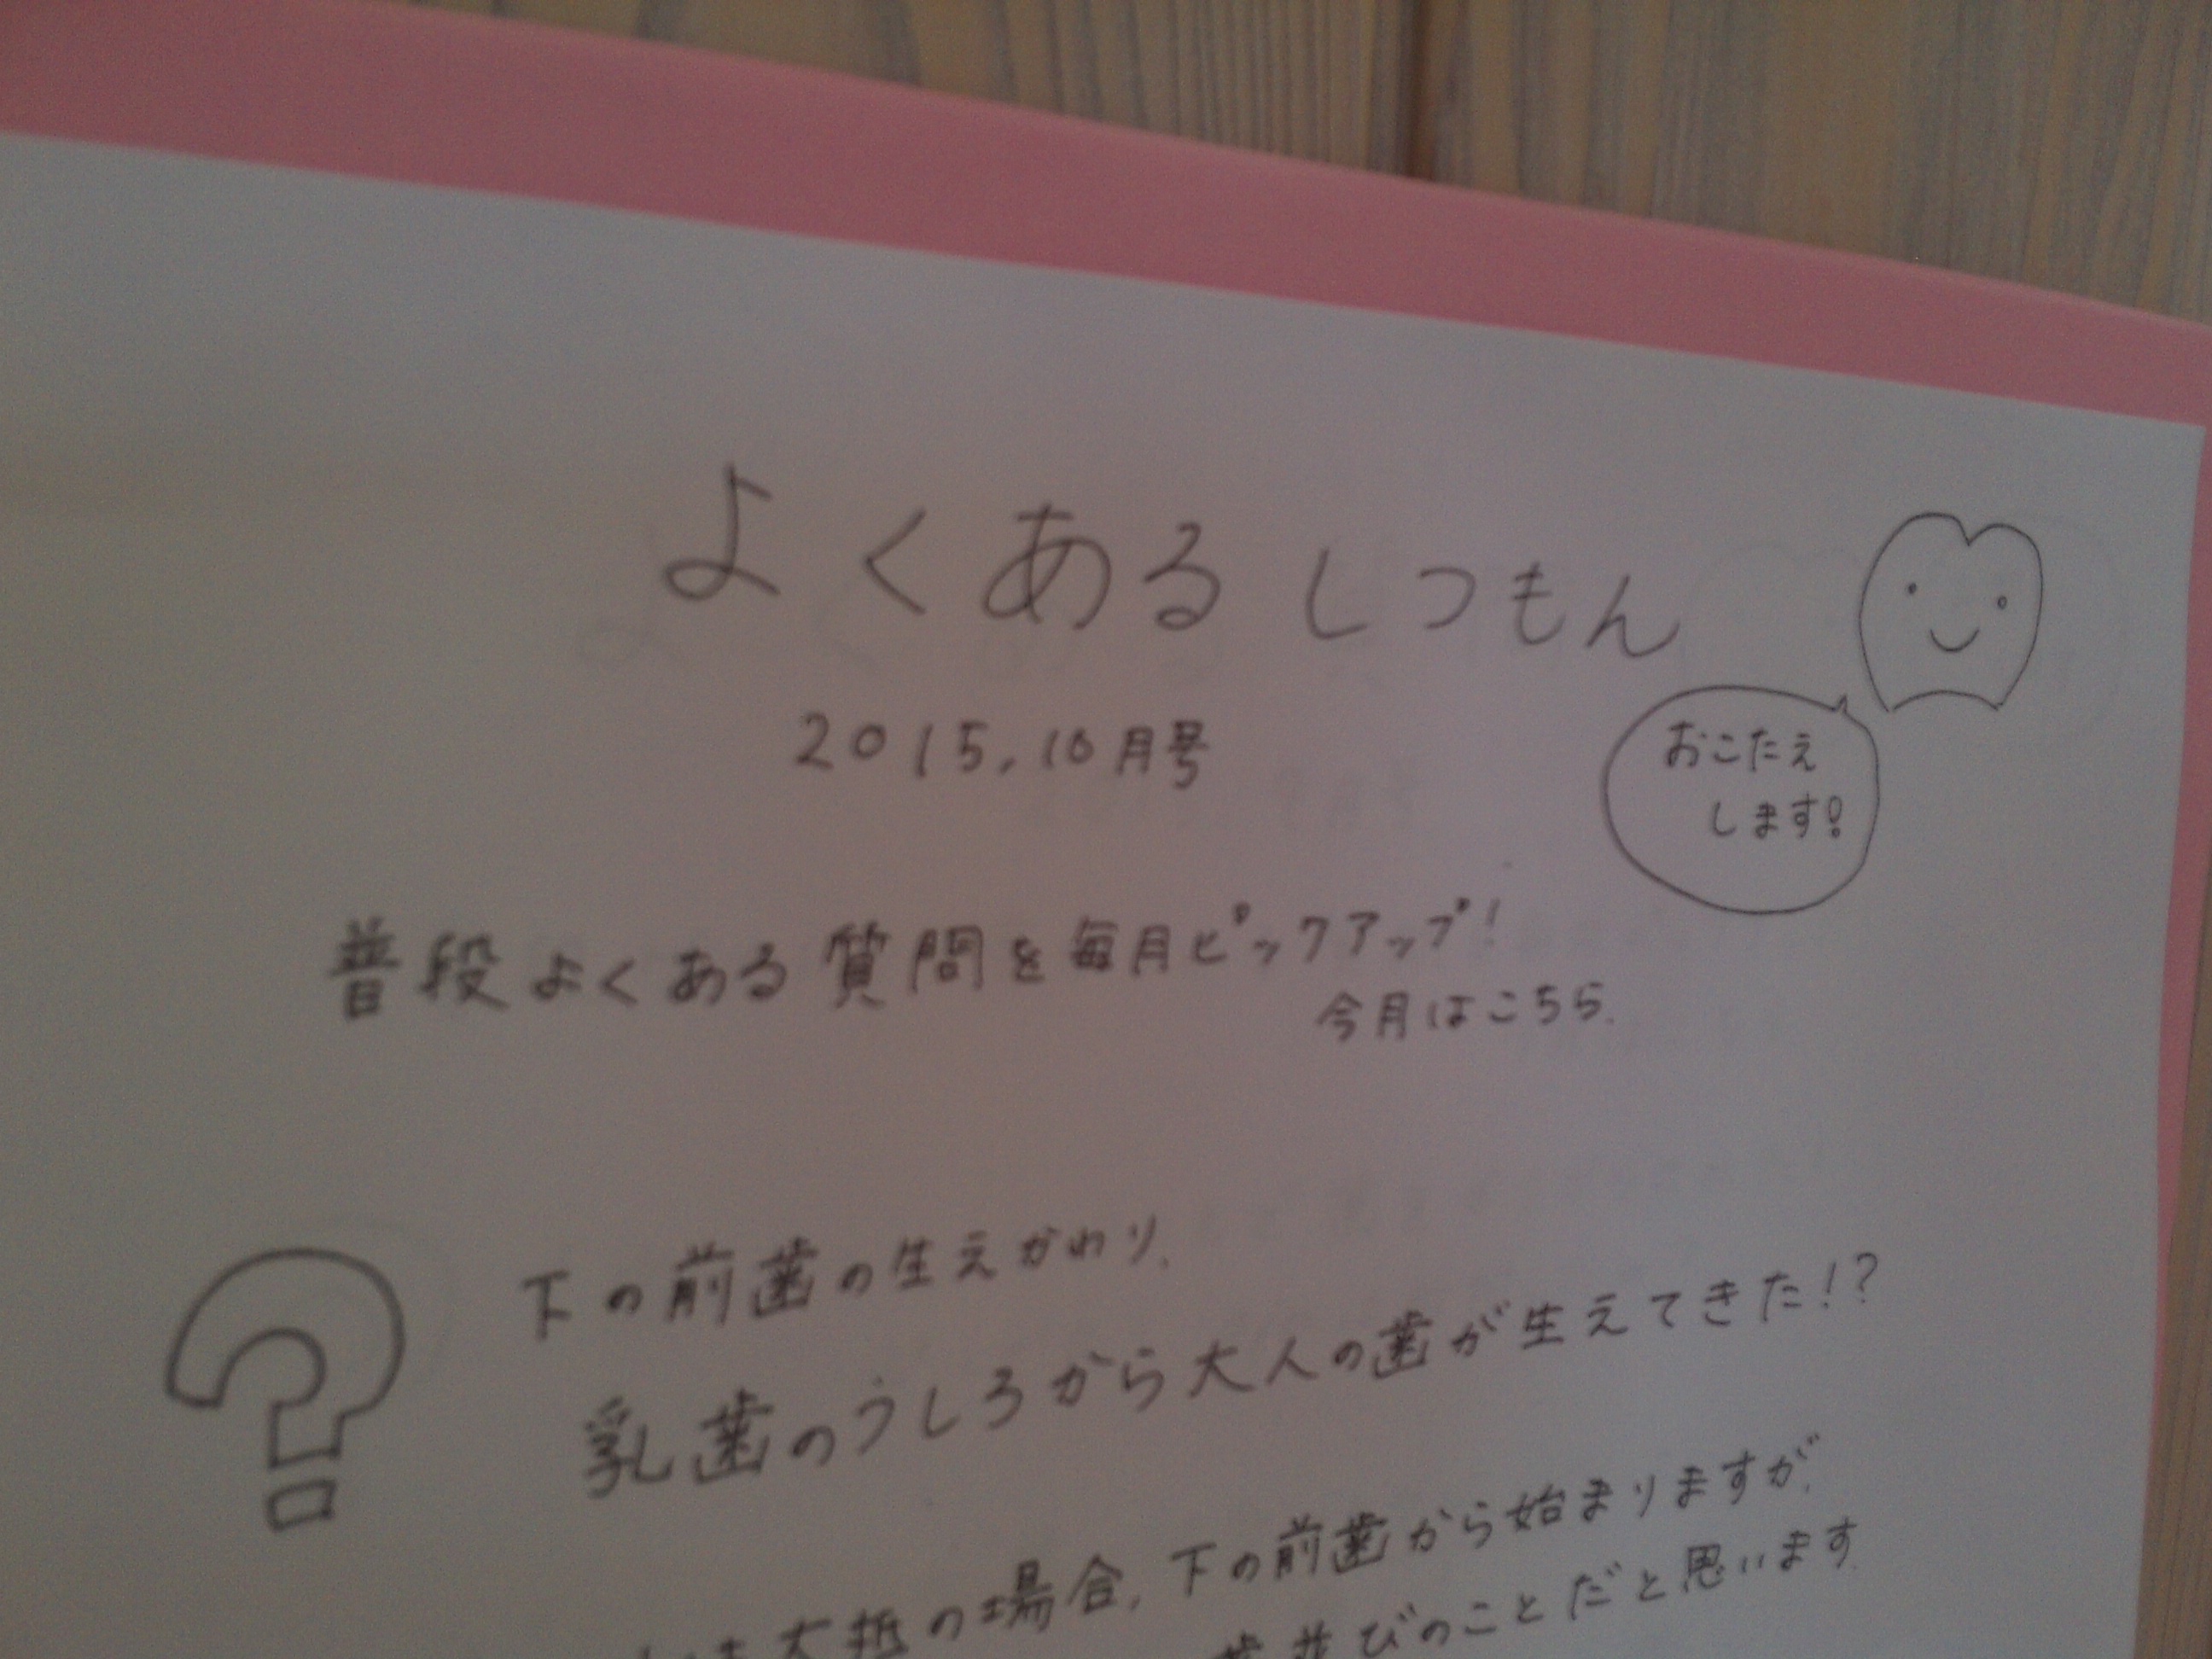 よくあるしつもん
2015,10月号
おこたえ
します!
普段よくある質問を毎月ピックアップ!
今月はこちら.
下の前歯の生えかわり.
乳歯のうしろから大人の歯が生えてきた!?
大抵の場合,下の前歯から始まりますが,
歯並びのことだと思います.